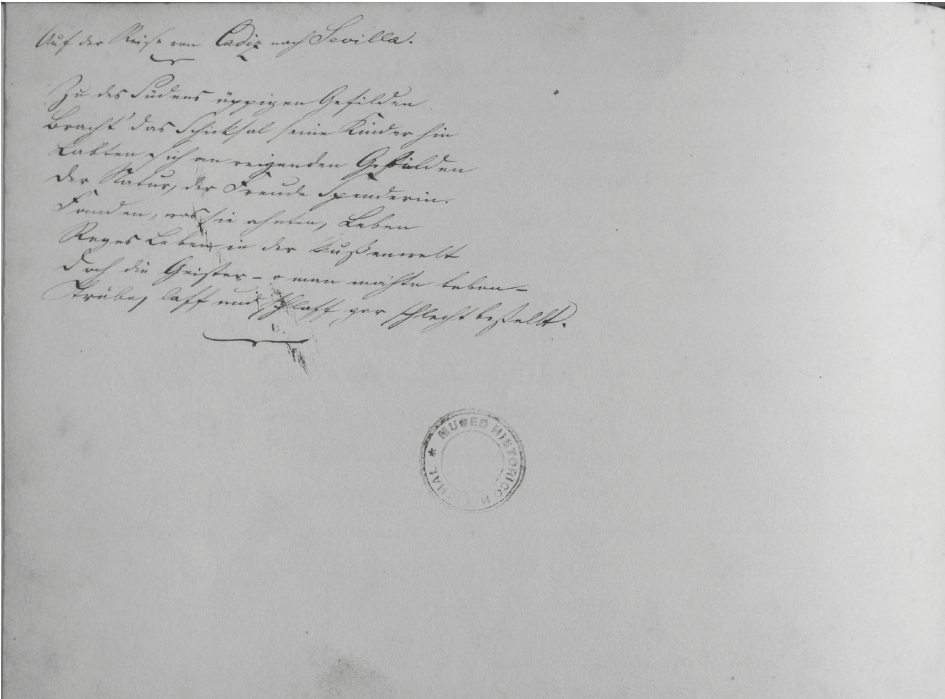 Auf der Reise von Cadiz nach Sevilla.
Zu des Südens üppigen Gefilden
Bracht' das Schicksal seine Kinder hin
Labten sich an reizenden Gebilden
Der Natur, der Freude Spenderin.
Fanden, was sie ahnten, Leben
Reges Leben in der Außenwelt
Doch die Geister – o man möchte beben –
Trübe, laff und schlaff, gar schlecht bestellt.
MUSEO HISTORICO